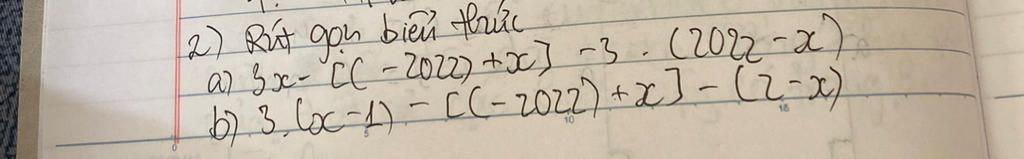 2) Rút gọn biểu thức
a) 3x - [(-2022) + x] - 3 . (2022 - x)
b) 3. (x - 1) - [(-2022) + x] - (2 - x)